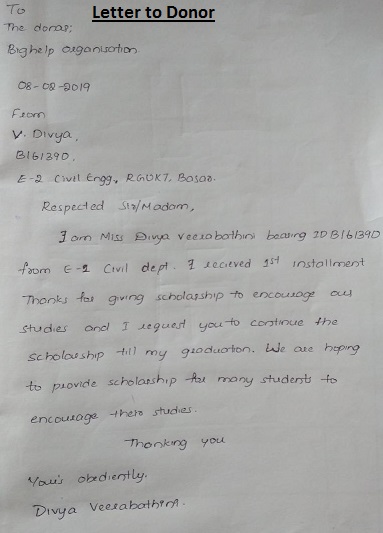 To
Letter to Donor
The donar;
Bighelp organisation
08-08-2019
From
V. Divya,
B161390,
E-2 Civil Engg., RGUKT, Basar.
Respected Sir/Madam,
I am Miss Divya Veerabothini bearing ID B161390
from E-2 Civil dept. I recieved 1st installment
Thanks for giving scholarship to encourage our
studies and I request you to continue the
scholarship till my graduation. We are hoping
to provide scholarship for many students to
encourage there studies.
Thanking you
Your's obediently.
Divya Veerabothini.